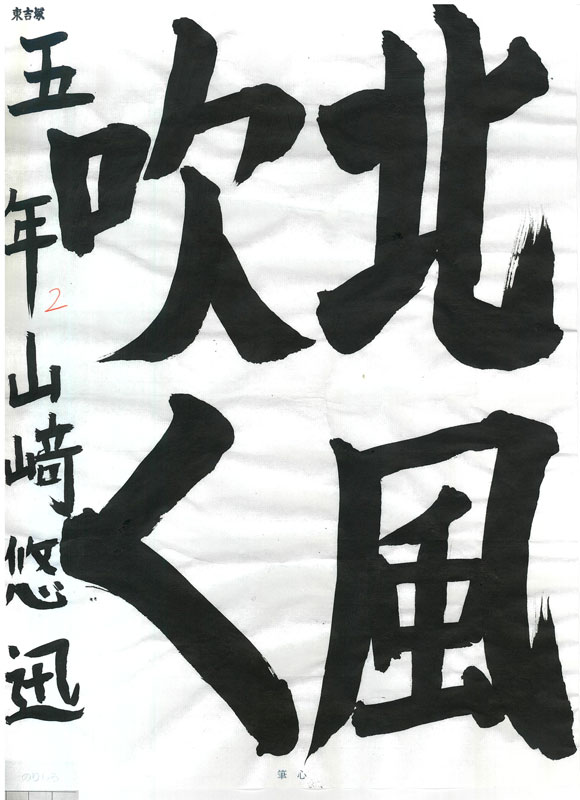 北風
吹く
五年山﨑悠迅
2
東吉塚
心筆